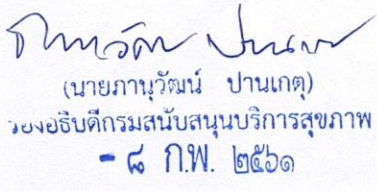 (นายภานุวัฒน์ ปานเกตุ)
รองอธิบดีกรมสนับสนุนบริการสุขภาพ
- ๘ ก.พ. ๒๕๖๑